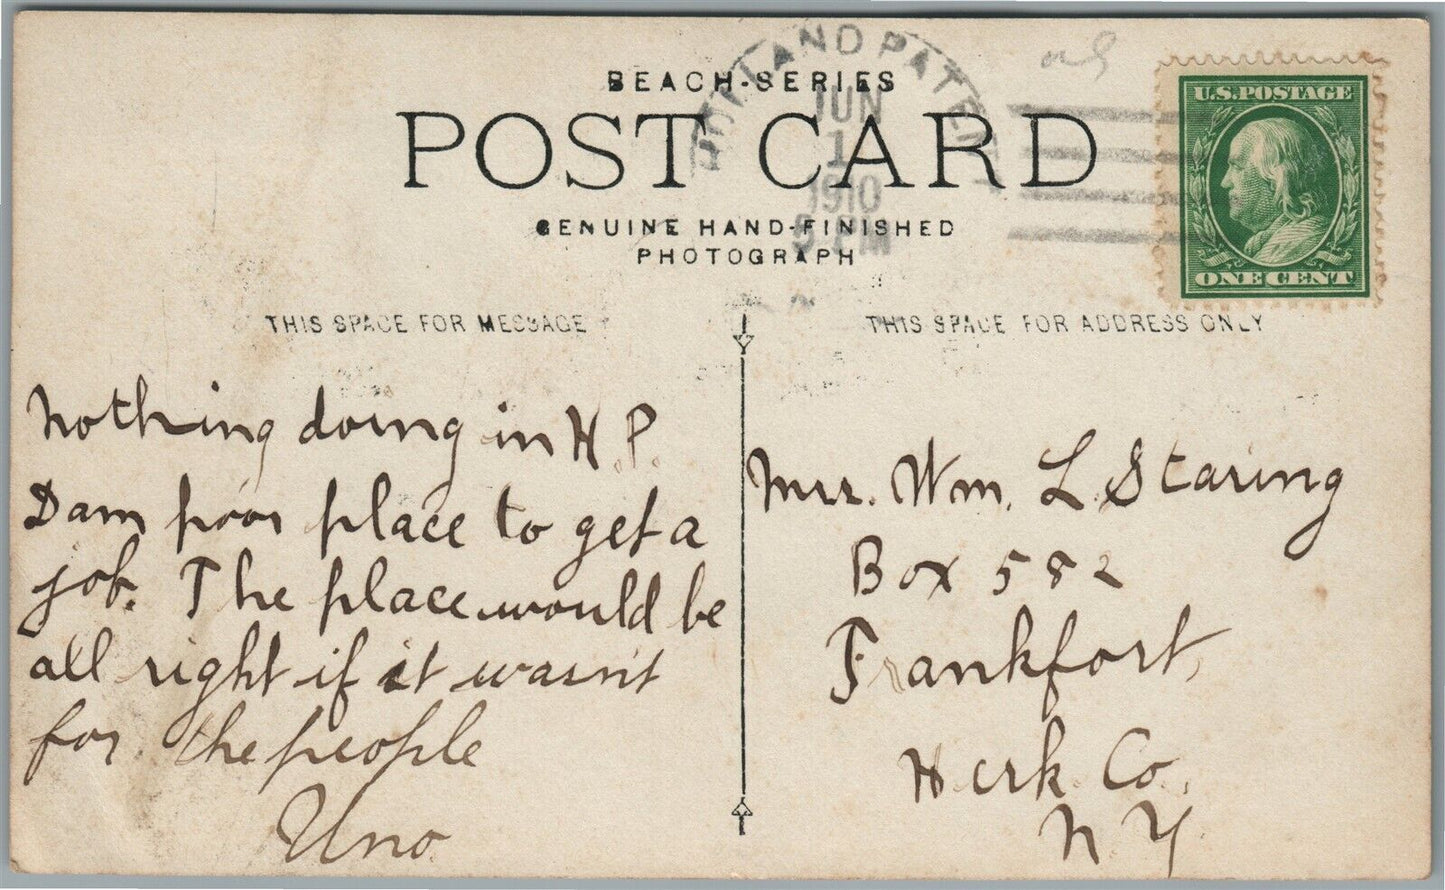 BEACH-SERIES
POST CARD
GENUINE HAND-FINISHED
PHOTOGRAPH
HOLLAND PATENT
JUN
1
1910
PM
U.S. POSTAGE
ONE CENT
THIS SPACE FOR MESSAGE
Nothing doing in H.P.
Dam poor place to get a
job. The place would be
all right if it wasn't
for the people
Uno
THIS SPACE FOR ADDRESS ONLY
Mr. Wm. L. Staring
Box 582
Frankfort,
Herk. Co.
N Y.